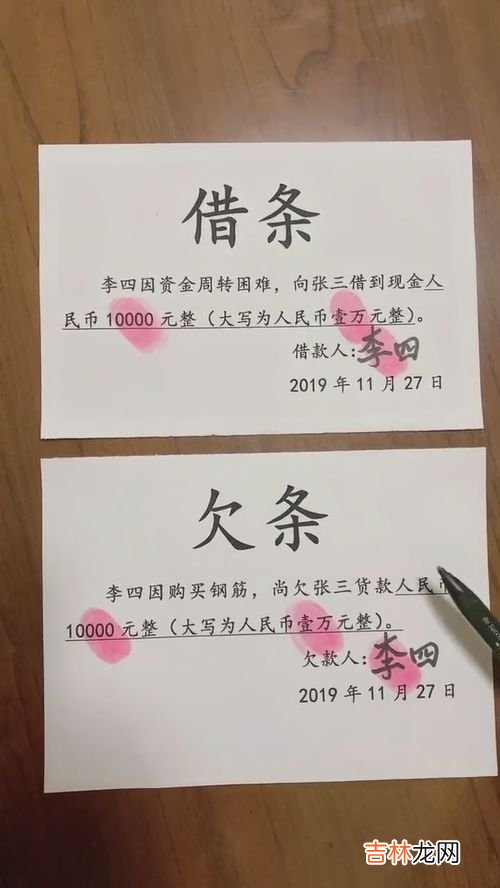 借条
李四因资金周转困难，向张三借到现金人
民币 10000 元整（大写为人民币壹万元整）。
借款人:李四
2019 年 11 月 27 日
欠条
李四因购买钢筋，尚欠张三货款人民币
10000 元整（大写为人民币壹万元整）。
欠款人:李四
2019 年 11 月 27 日
吉林龙网